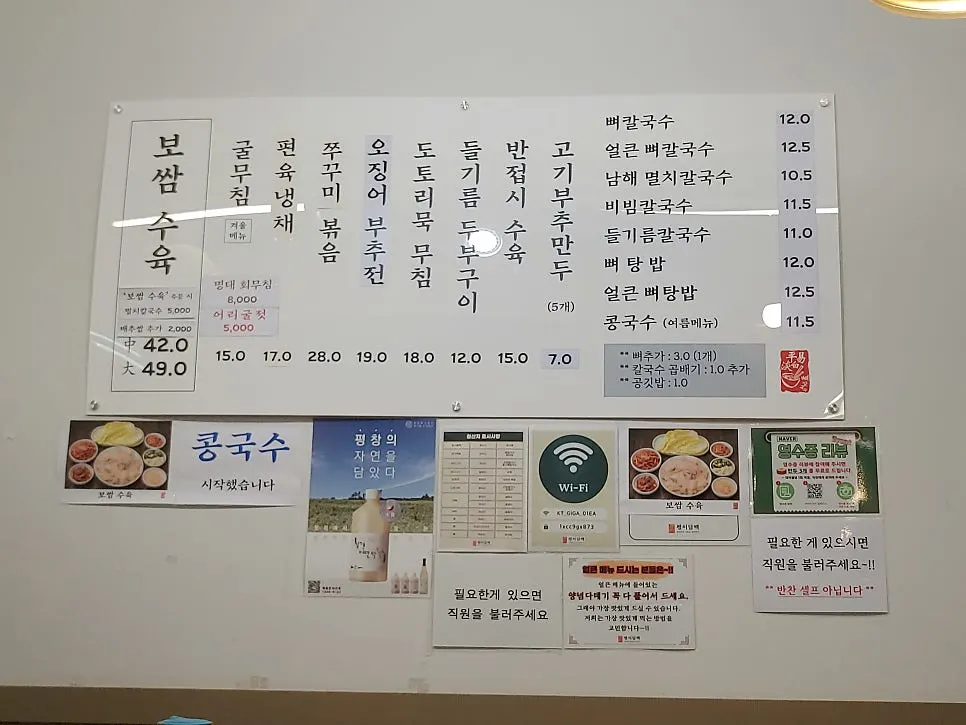 보쌈 수육
'보쌈 수육' 주문 시
멸치칼국수 5,000
배추쌈 추가 2,000
中 42.0
大 49.0
굴무침
겨울
메뉴
15.0
명태 회무침
8,000
어리굴젓
5,000
편육냉채
17.0
쭈꾸미 볶음
28.0
오징어 부추전
19.0
도토리묵 무침
18.0
들기름 두부구이
12.0
반접시 수육
15.0
고기부추만두
(5개)
7.0
뼈칼국수 12.0
얼큰 뼈칼국수 12.5
남해 멸치칼국수 10.5
비빔칼국수 11.5
들기름칼국수 11.0
뼈 탕 밥 12.0
얼큰 뼈탕밥 12.5
콩국수 (여름메뉴) 11.5
** 뼈추가 : 3.0 (1개)
** 칼국수 곱배기 : 1.0 추가
** 공깃밥 : 1.0
보쌈 수육
콩국수
시작했습니다
평창의
자연을
담았다
원산지 표시사항
Wi-Fi
KT_GIGA_01EA
1xcc9gx873
보쌈 수육
NAVER
영수증 리뷰
필요한게 있으면
직원을 불러주세요
얼큰 메뉴 드시는 분들은~!!
얼큰 메뉴에 들어있는
양념다데기 꼭 다 풀어서 드세요.
그래야 가장 맛있게 드실 수 있습니다.
저희는 가장 맛있게 먹는 방법을
고민합니다~!!
필요한 게 있으시면
직원을 불러주세요~!!
** 반찬 셀프 아닙니다 **